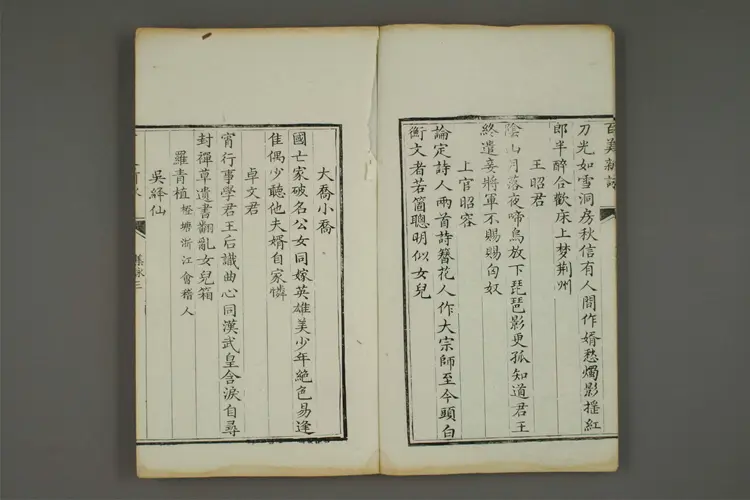 百美新詠
刀光如雪洞房秋信有人間作婿愁燭影搖紅
郎半醉合歡床上梦荆州
王昭君
陰山月落夜啼烏放下琵琶影更孤知道君王
終遣妾將軍不賜賜匈奴
上官昭容
論定詩人兩首詩簪花人作大宗師至今頭白
衡文者若箇聰明似女兒
大喬小喬
國亡家破名公女同嫁英雄美少年絶色易逢
佳偶少聽他夫婿自家憐
卓文君
宵行事學君王后識曲心同漢武皇含淚自尋
封禪草遺書翻亂女兒箱
羅青植橙塘浙江會稽人
吳絳仙
集詠三